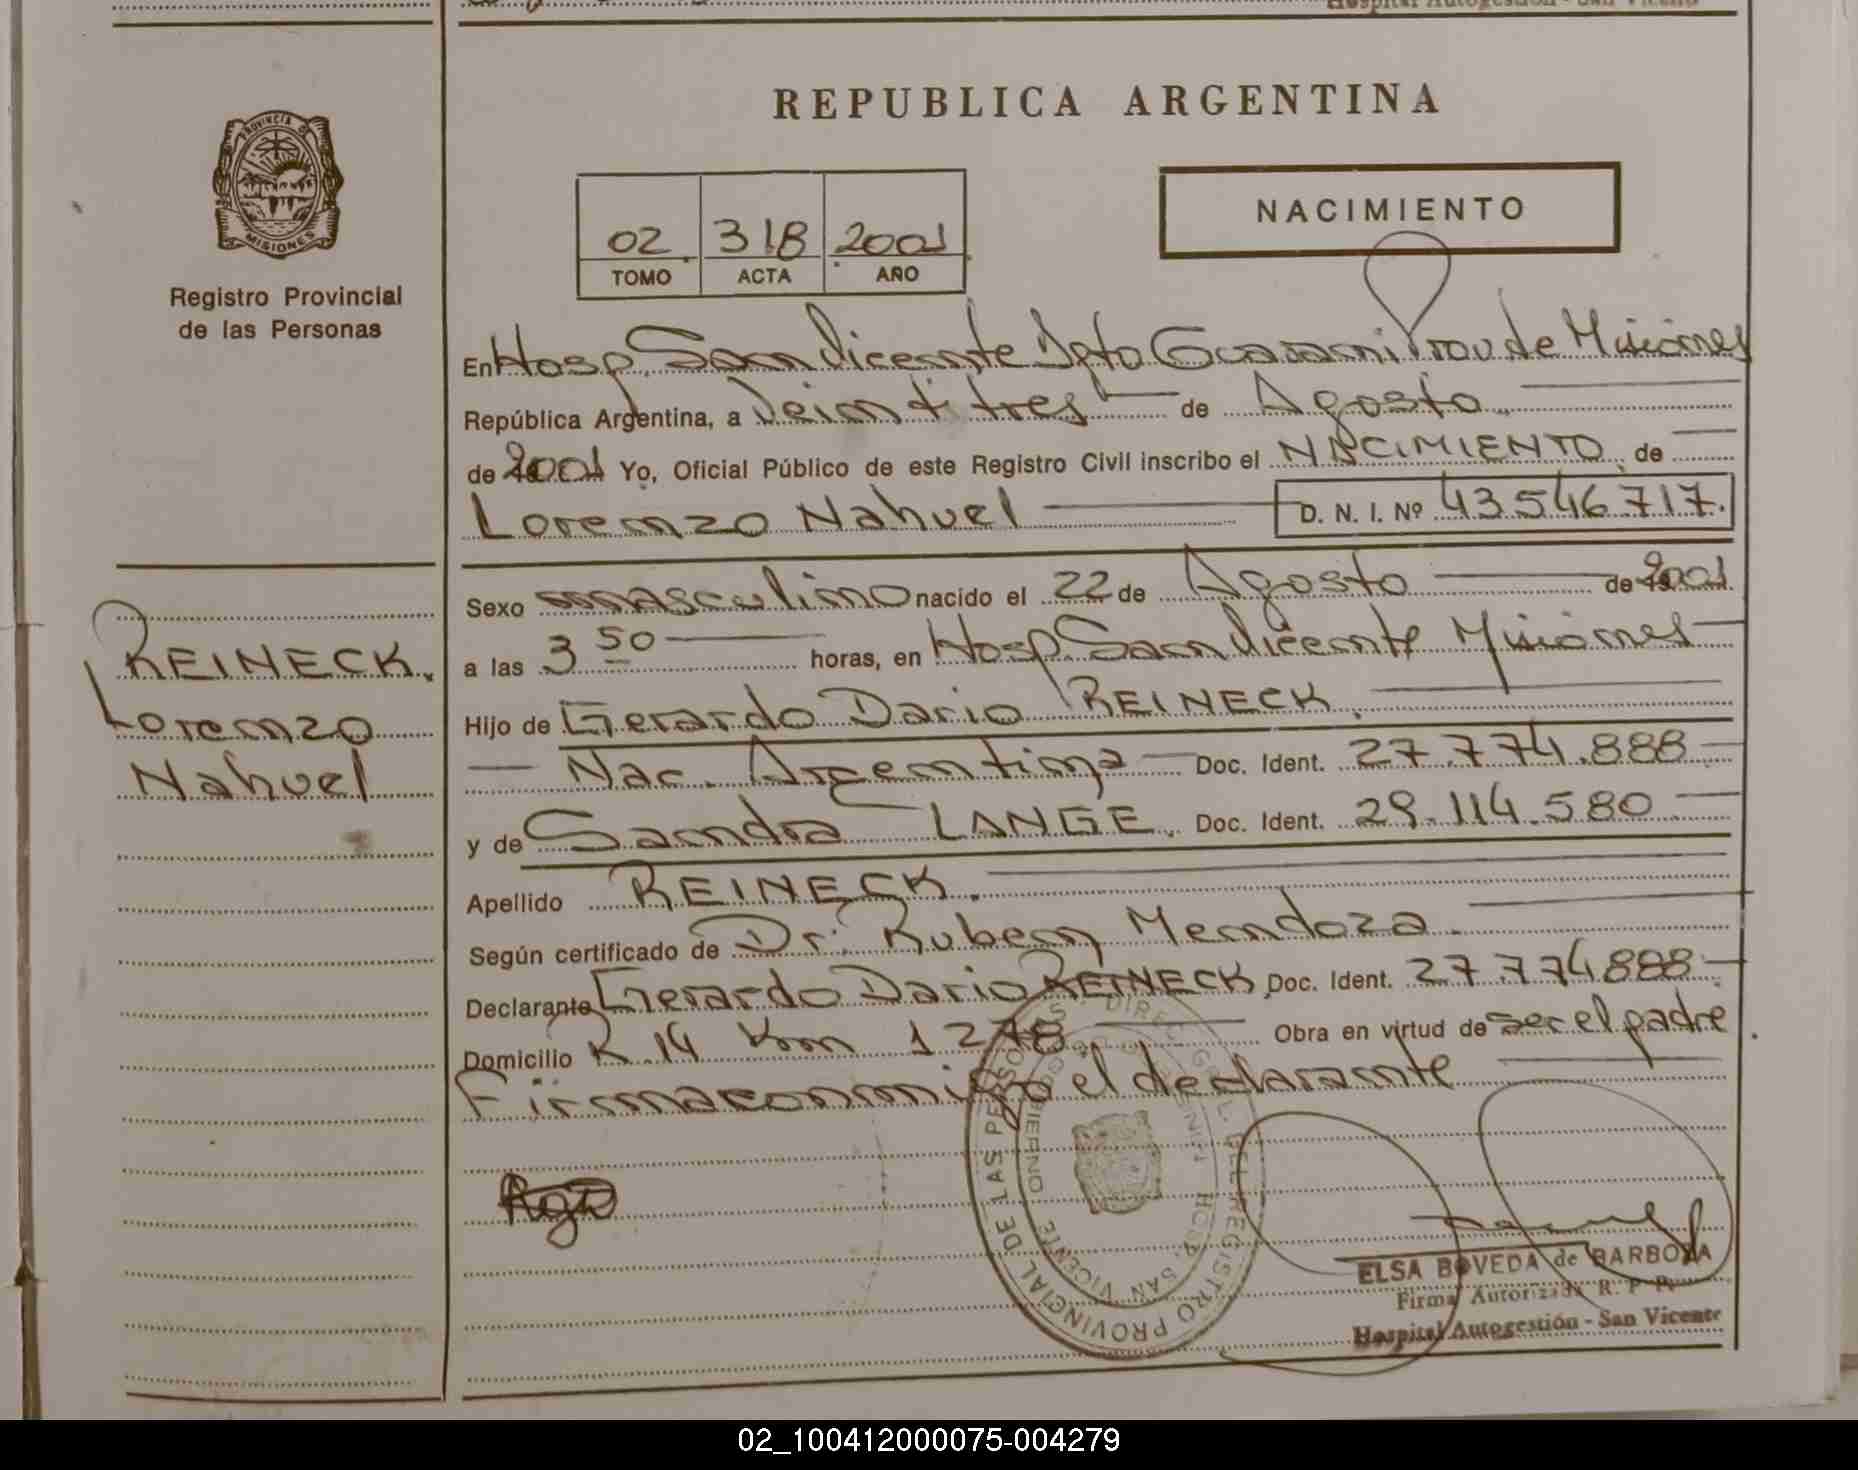 Hospital Autogestión - San Vicente
PROVINCIA DE
MISIONES
Registro Provincial
de las Personas
REPUBLICA ARGENTINA
02 318 2001
TOMO ACTA AÑO
NACIMIENTO
En Hosp. San Vicente Dpto Guarani Prov de Misiones
República Argentina, a Veintitres de Agosto
de 2001 Yo, Oficial Público de este Registro Civil inscribo el NACIMIENTO de
Lorenzo Nahuel D. N. I. Nº 43.546.717.
Sexo masculino nacido el 22 de Agosto de 2001
a las 3 50 horas, en Hosp San Vicente Misiones
Hijo de Gerardo Dario REINECK.
Nac. Argentina Doc. Ident. 27.774.888
y de Sandra LANGE. Doc. Ident. 29.114.580
Apellido REINECK.
Según certificado de Dr. Ruben Mendoza.
Declarante Gerardo Dario REINECK Doc. Ident. 27.774.888
Domicilio R. 14 Km 1278 Obra en virtud de ser el padre
Firma conmigo el declarante
REINECK.
Lorenzo
Nahuel
DIREC. GRAL. DEL REGISTRO PROVINCIAL DE LAS PERSONAS
HOSP. SAN VICENTE
ELSA BOVEDA de BARBOZA
Firma Autorizada R. P. P.
Hospital Autogestión - San Vicente
02_100412000075-004279